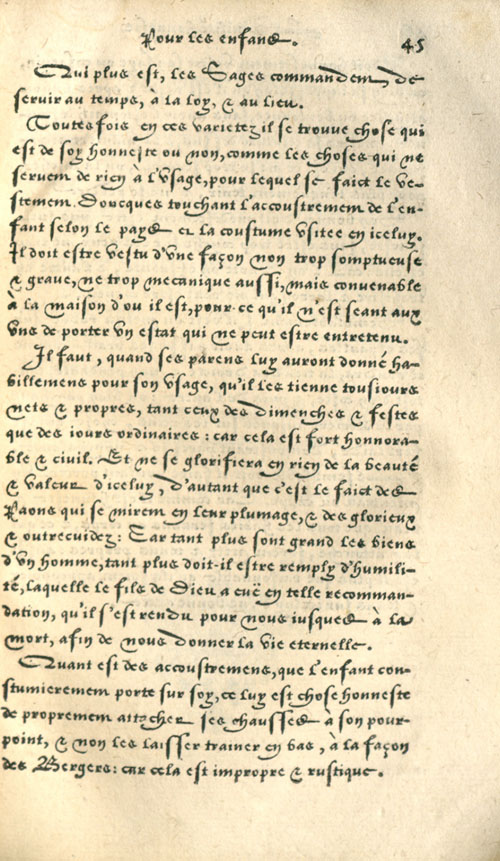 Pour les enfans. 45
Qui plus est, les Sages commandent, de
servir au temps, à la loy, & au lieu.
Toutesfois en ces varietez il se trouve chose qui
est de soy honneste ou non, comme les choses qui ne
servent de rien à l'vsage, pour lequel se faict le ve-
stement. Doucques touchant l'accoustrement de l'en-
fant selon le pays et la coustume vsitee en iceluy.
Il doit estre vestu d'vne façon non trop somptueuse
& grave, ne trop mecanique aussi, mais convenable
à la maison d'ou il est, pour-ce qu'il n'est seant aux
vns de porter vn estat qui ne peut estre entretenu.
Il faut, quand ses parens luy auront donné ha-
villemens pour son vsage, qu'il les tienne tousiours
nets & propres, tant ceux des Dimenches & festes
que des iours ordinaires : car cela est fort honnora-
ble & civil. Et ne se glorifiera en rien de la beauté
& valeur d'iceluy, d'autant que c'est le faict des
Paons qui se mirent en leur plumage, & des glorieux
& outrecuidez : Car tant plus sont grand les biens
d'vn homme, tant plus doit-il estre remply d'humili-
té, laquelle le fils de Dieu a euë en telle recomman-
dation, qu'il s'est rendu pour nous iusques à la
mort, afin de nous donner la vie eternelle.
Quant est des accoustremens, que l'enfant con-
stumierement porte sur soy, ce luy est chose honneste
de proprement attacher ses chausses à son pour-
point, & non les laisser trainer en bas, à la façon
des Bergers : car cela est impropre & rustique.